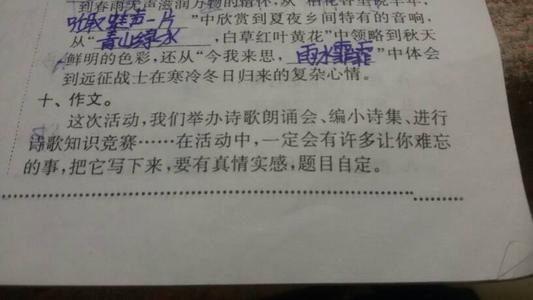 到春雨无声滋润万物的情怀,从“稻花香里说丰年,
听取蛙声一片”中欣赏到夏夜乡间特有的音响,
从“青山绿水,白草红叶黄花”中领略到秋天
鲜明的色彩,还从“今我来思,雨水霏霏”中体会
到远征战士在寒冷冬日归来的复杂心情。
十、作文。
这次活动,我们举办诗歌朗诵会、编小诗集、进行
诗歌知识竞赛……在活动中,一定会有许多让你难忘
的事,把它写下来,要有真情实感,题目自定。